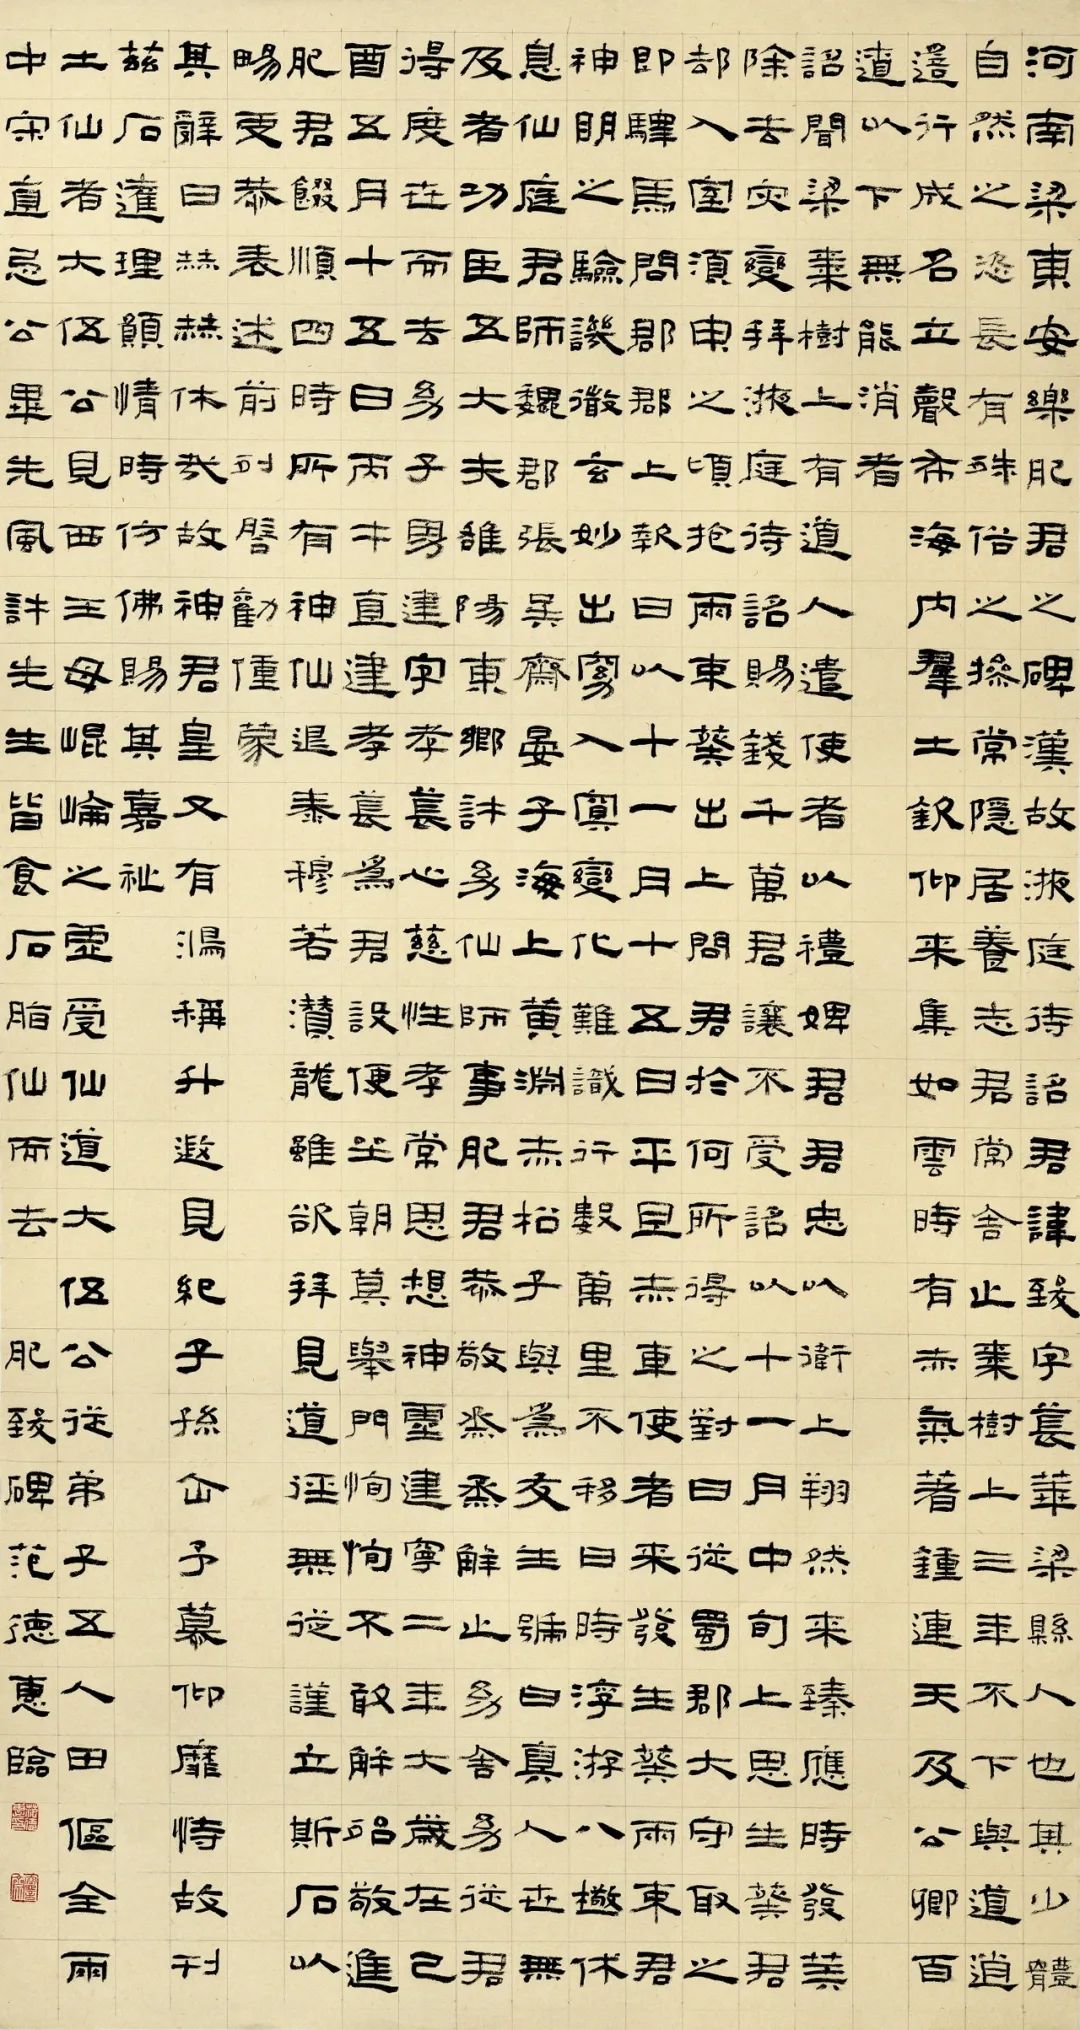 河南梁東安樂肥君之碑漢故掖庭待詔君諱致字萇華梁縣人也其少體
自然之恣長有殊俗之操常隱居養志君常舍止棗樹上三年不下與道逍
遙行成名立聲布海內羣士欽仰来集如雲時有赤氣著鍾連天及公卿百
遣以下無能消者
詔聞梁棗樹上有道人遣使者以禮娉君君忠以衛上翔然来臻應時發筭
除去灾變拜掖庭待詔賜錢千萬君讓不受詔以十一月中旬上思生葵君
却入室須臾之頃抱兩束葵出上問君於何所得之對曰從蜀郡大守取之
即驛馬問郡郡上報曰以十一月十五日平旦赤車使者来發生葵兩束君
神明之驗譏徹玄妙出窈入冥變化難識行數萬里不移日時浮游八極休
息仙庭君師魏郡張吳齋晏子海上黃淵赤松子與為友生號曰真人世無
及者功臣五大夫雒陽東鄉許幼仙師事肥君恭敬烝烝解止幼舍幼從君
得度世而去幼子男建字孝萇心慈性孝常思想神靈建寧二年大歲在己
酉五月十五日丙午直建孝萇為君設便坐朝莫舉門恂恂不敢解殆敬進
肥君餟順四時所有神仙退泰穆若瀆龍雖欲拜見道徑無從謹立斯石以
暢更恭表述前列啓勸僮蒙
其辭曰赫赫休哉故神君皇又有鴻稱升遐見紀子孫企予慕仰靡恃故刊
茲石達理願情時仿佛賜其嘉祉
土仙者大伍公見西王母崐崘之虛受仙道大伍公從弟子五人田傴全雨
中宋直忌公畢先風許先生皆食石脂仙而去 肥致碑范德惠臨